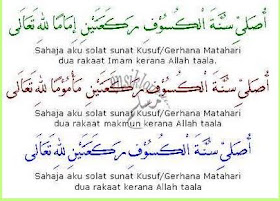 أُصَلِّيْ سُنَّةَ الْكُسُوْفِ رَكْعَتَيْنِ إِمَامًا لِلّٰهِ تَعَالَى
Sahaja aku solat sunat Kusuf/Gerhana Matahari
dua rakaat Imam kerana Allah taala.
أُصَلِّيْ سُنَّةَ الْكُسُوْفِ رَكْعَتَيْنِ مَأْمُوْمًا لِلّٰهِ تَعَالَى
Sahaja aku solat sunat Kusuf/Gerhana Matahari
dua rakaat makmun kerana Allah taala
أُصَلِّيْ سُنَّةَ الْكُسُوْفِ رَكْعَتَيْنِ لِلّٰهِ تَعَالَى
Sahaja aku solat sunat Kusuf/Gerhana Matahari
dua rakaat kerana Allah taala